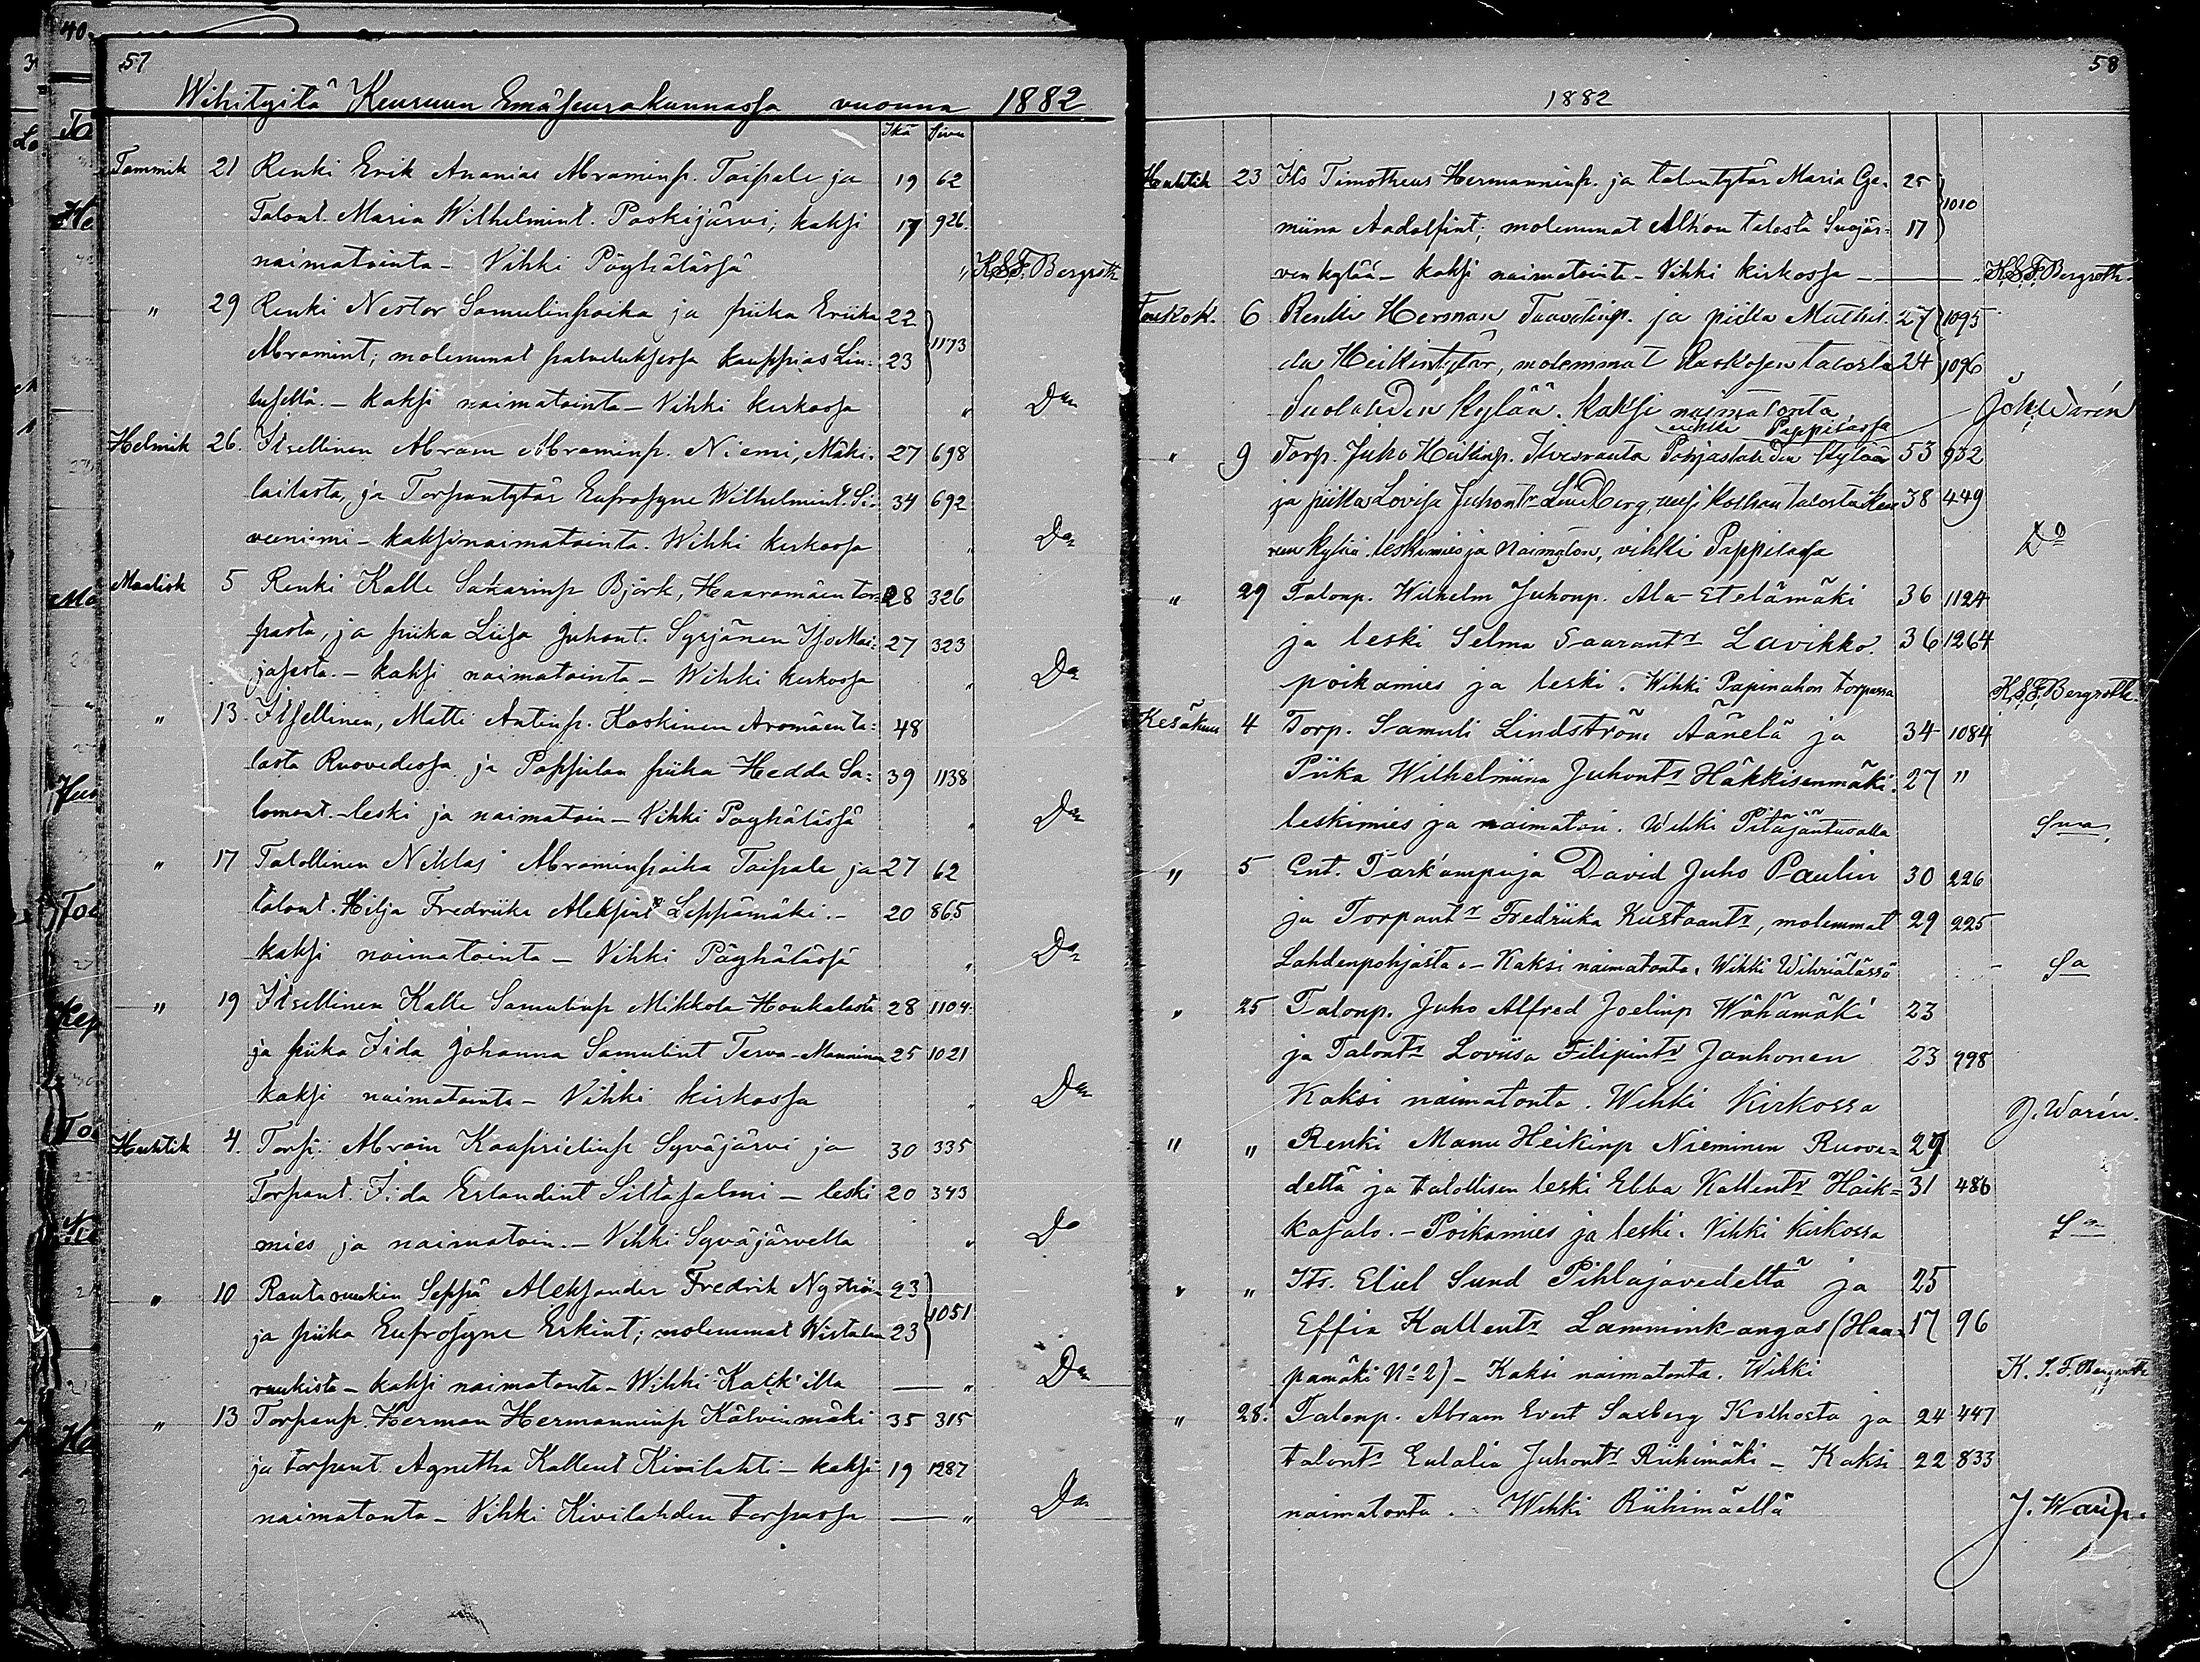 57
Wihityitä Keuruun Emäseurakunnassa vuonna 1882
Ikä Sivu
Tammik 21 Renki Erik Ananias Abraminp. Taipale ja 19 62
Talont. Maria Wilhelmint. Poskijärvi; kaksi 17 926.
naimatointa - Vihki Pöyhälässä " K.S.F. Bergroth
" 29 Renki Nestor Samulinpoika ja piika Eriika 22
Abramint; molemmat palveluksessa kauppias Lin- 23 1173
tusella. - kaksi naimatointa - Vihki kirkossa " Do
Helmik 26. Itsellinen Abram Abraminp. Niemi, Mäki- 27 698
laitasta, ja Torpantytär Eufrosyne Wilhelmint. Si- 34 692
veniemi - kaksi naimatointa. Wihki kirkossa " Do
Maalisk 5 Renki Kalle Sakarinp Björk, Haaramäen tor- 28 326
pasta, ja piika Liisa Juhont. Syrjänen Iso Mai- 27 323
jasesta. - kaksi naimatointa - Wihki kirkossa " Do
" 13. Itsellinen, Matti Antinp. Koskinen Aromäen ta- 48
losta Ruovedessa ja Pappilan piika Hedda Sa- 39 1138
lomont. - leski ja naimatoin - Vihki Pöyhälässä " Do
" 17 Talollinen Niklas Abraminpoika Taipale ja 27 62
talont. Hilja Fredriika Aleksint Leppämäki. - 20 865
kaksi naimatointa - Vihki Pöyhälässä " Do
" 19 Itsellinen Kalle Samulinp Mikkola Houkalasta 28 1104
ja piika Iida Johanna Samulint Terva-Manninen 25 1021
kaksi naimatointa - Vihki kirkossa " Do
Huhtik 4. Torp. Abram Kaaprielinp Syväjärvi ja 30 335
Torpant. Iida Erlandint Siltasalmi - leski 20 343
mies ja naimatoin. - Vihki Syväjärvella " Do
" 10 Rautaruukin Seppä Aleksander Fredrik Nyström 23
ja piika Eufrosyne Erkint; molemmat 23 1051
ruukista - kaksi naimatonta - Wihki Kalk'illa - " Do
" 13 Torpanp. Herman Hermanninp Kälvinmäki 35 315
ja torpant. Agnetha Kallent Kivilahti - kaksi 19 1287
naimatonta - Vihki Kivilahden torpassa - " Do
58
1882
Huhtik 23 Its Timotheus Hermanninp. ja talontytär Maria Ge- 25
miina Aadolfint; molemmat Alhon talosta Suojär- 17 1010
ven kylää - kaksi naimatointa - Vihki kirkossa - K.S.F. Bergroth
Toukok. 6 Renki Herman Taavetinp. ja piika Mathil- 27 1095
da Heikintytär, molemmat talosta 24 1096
Suolahden kylää. Kaksi naimatonta, vihki Pappilassa Joh. Warén
" 9 Torp. Juho Heikinp. Pohjaslahden kylää 53 932
ja piika Lovisa Juhontr Lindberg, Kolhon talosta Keu 38 449
ren kylää. leskimies ja naimaton, vihki Pappilassa Do
" 29 Talonp. Wilhelm Juhonp. Ala-Etelämäki 36 1124
ja leski Selma Saarantr Lavikko. 36 1264
poikamies ja leski. Wihki Papinahon torpassa K.S.F. Bergroth
Kesäkuu 4 Torp. Samuli Lindström Äänelä ja 34 1084
Piika Wilhelmiina Juhontr Häkkisenmäki. 27 "
leskimies ja naimaton. Wihki Pitäjäntuvalla Sama
" 5 Ent. Tark'ampuja David Juho Paulin 30 226
ja Torpantr Fredriika Kustaantr, molemmat 29 225
Lahdenpohjasta. - Kaksi naimatonta. Wihki Wihriälässä Sa
" 25 Talonp. Juho Alfred Joelinp Wähämäki 23
ja Talontr Loviisa Filipintr Janhonen 23 998
Kaksi naimatonta. Wihki Kirkossa J. Warén.
" " Renki Manu Heikinp Nieminen Ruove- 29
deltä ja talollisen leski Ebba Kallentr Haik- 31 486
kasalo. - Poikamies ja leski. Vihki Kirkossa Sa
" " Its. Eliel Sund Pihlajavedeltä ja 25
Effia Kallentr Lamminkangas (Haa- 17 96
pamäki No 2) - Kaksi naimatonta. Wihki K. S. F. Bergroth
" 28. Talonp. Abram Evert Saxberg Kolhosta ja 24 447
talontr Eulalia Juhontr Riihimäki - Kaksi 22 833
naimatonta. Wihki Riihimäellä J. Warén.